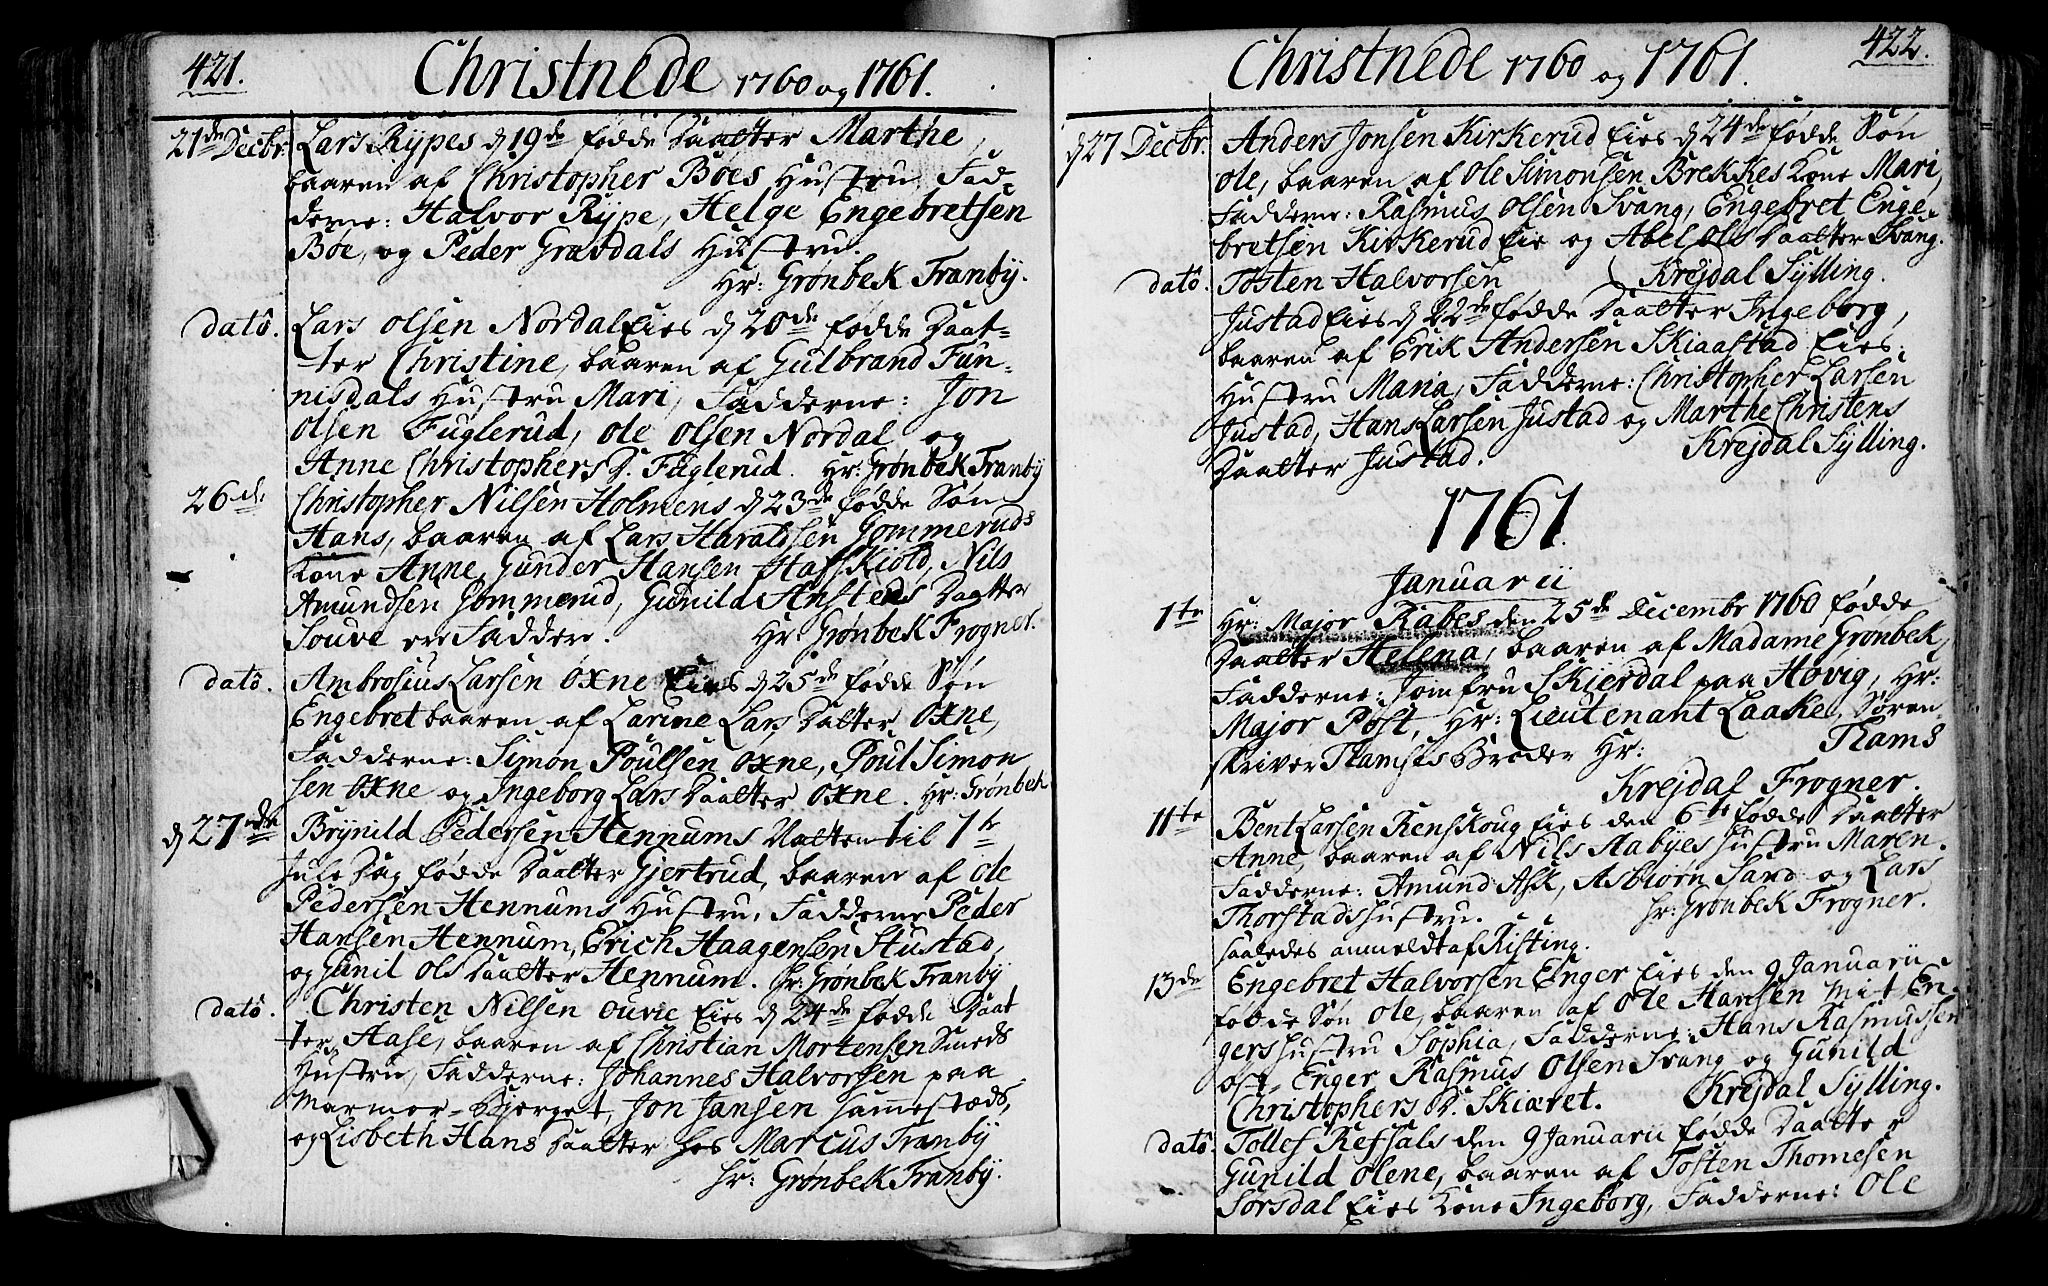 421.
Christnede 1760 og 1761.
21de Decbr. Lars Rypes d 19de fødde Daatter Marthe,
baaren af Christopher Böes Hustru Fad-
derne: Halvor Rype, Helge Engebretsen
Böe, og Peder Gravdals Hustru.
Hr: Grønbek Tranby.
dato. Lars Olsen Nordal Eies d 20de fødde Daat-
ter Christine, baaren af Gulbrand Fun-
nisdals Hustru Mari, Fadderne: Jon
Olsen Fuglerud, Ole Olsen Nordal og
Anne Christophers D. Fuglerud. Hr: Grønbek Tranby
26de Christopher Nilsen Holmens d 23de fødde Søn
Hans, baaren af Lars Haraldsen Gommeruds
Kone Anne, Gunder Hansen Hafskiold, Nils
Amundsen Gommerud, Gunild Anstens Daatter
Souve ere Faddere. Hr: Grønbek Frogner.
dato. Ambrosius Larsen Oxne Eies d 25de fødde Søn
Engebret baaren af Larine Lars Datter Oxne,
Fadderne: Simon Poulsen Oxne, Poul Simon
sen Oxne og Ingeborg Lars Daatter Oxne. Hr: Grønbek
d 27de Brynild Pedersen Hennums Natten til 1te
Jule Dag fødde Daatter Gjertrud, baaren af Ole
Pedersen Hennums Hustru, Fadderne Peder
Hansen Hennum, Erich Haagensen Stustad,
og Gunil Ols Daatter Hennum. Hr: Grønbek Tranby
dato. Christen Nilsen Ouvie Eies d 24de fødde Daat
ter Aase, baaren af Christian Mortensen Smeds
Hustru, Fadderne: Johannes Halvorsen paa
Marmor-Bjerget, Jon Jansen sammestæds,
og Lisbeth Hans Daatter hos Marcus Tranby
Hr: Grønbek Tranby.
422.
Christnede 1760 og 1761.
d 27 Decbr. Anders Jonsen Kirkerud Eies d 24de fødde Søn
Ole, baaren af Ole Simonsen Brekkes Kone Mari,
Fadderne: Rasmus Olsen Svang, Engebret Enge-
bretsen Kirkerud Eie og Abel Ols Daatter Svang.
dato. Tosten Halvorsen Krejdal Sylling.
Justad Eies d 22de fødde Daatter Ingeborg,
baaren af Erik Andersen Skiaastad Eies
Hustru Maria, Fadderne: Christopher Larsen
Justad, Hans Larsen Justad og Marthe Christens
Daatter Justad. Krejdal Sylling.
1761.
Januarii
1te Hr: Major Rabes den 25de Decembr 1760 fødde
Daatter Helena, baaren af Madame Grønbek,
Fadderne: Jomfru Skierdal paa Høvig, Hr:
Major Post, Hr: Lieutenant Laake, Søren-
skriver Thamses Broder Hr: Thams
Krejdal Frogner.
11te Bent Larsen Renskoug Eies den 6te fødde Daatter
Anne, baaren af Nils Aabyes Hustru Maren.
Fadderne: Amund Ask, Asbiørn Sand og Lars
Thorstads Hustru. Hr: Grønbek Frogner.
saaledes anmeldt af Risting.
13de Engebret Halvorsen Enger Eies den 9 Januarii
fødde Søn Ole, baaren af Ole Hansen Mit En-
gers Hustru Sophia, Fadderne: Hans Rasmussen
Ost-Enger Rasmus Olsen Svang og Gunild
Christophers D. Skiæret. Krejdal Sylling.
dato. Tollef Refsals den 9 Januarii fødde Daatter
Gunild Olene, baaren af Tosten Thomesen
Sorsdal Eies Kone Ingeborg, Fadderne: Ole